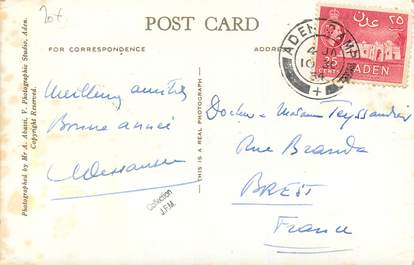 20f
POST CARD
FOR CORRESPONDENCE
ADDRESS
Meilleurs amitiés
Bonne année
Docteur & Madame Teyssandier
Rue Branda
BREST
France
Photographed by Mr A. Abassi, V. Photographic Studio, Aden.
Copyright Reserved.
THIS IS A REAL PHOTOGRAPH
Collection
J.F.M.
ADEN CAMP
عدن
٢٥
25
CENTS
ADEN